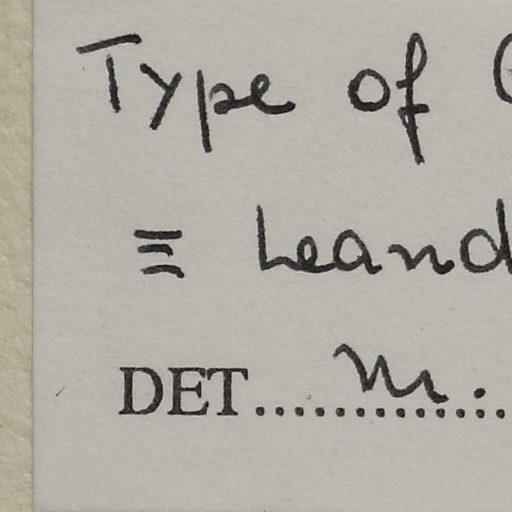 Type of
≡ Leand
DET.... M. ....